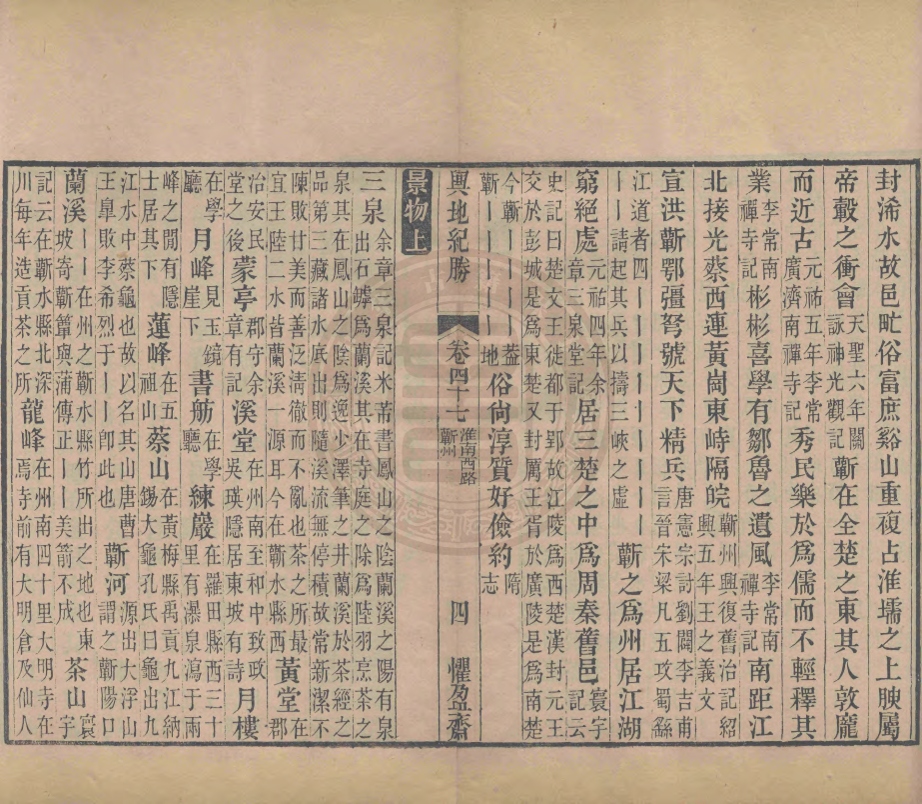 封浠水故邑甿俗富庶谿山重複占淮壖之上腴屬
帝轂之衝會天聖六年關詠神光觀記蘄在全楚之東其人敦龎
而近古元祐五年李常廣濟南禪寺記秀民樂於爲儒而不輕釋其
業李常南禪寺記彬彬喜學有鄒魯之遺風李常南禪寺記南距江
北接光蔡西連黃崗東峙隔皖蘄州興復舊治記紹興五年王之義文
宣洪蘄鄂彊弩號天下精兵唐憲宗討劉闢李吉甫言晉宋梁凡五攻蜀繇
江道者四丨丨丨丨丨請起其兵以擣三峽之虛蘄之爲州居江湖
窮絕處元祐四年余章三泉堂記居三楚之中爲周秦舊邑寰宇記云
史記曰楚文王徙都于郢故江陵爲西楚漢封元王交於彭城是爲東楚又封厲王胥於廣陵是爲南楚
今蘄丨丨丨丨益蘄丨丨丨丨地俗尚淳質好儉約隋志
輿地紀勝 卷四十七 淮南西路 蘄州 四 懼盈齋
景物上
三泉余章三泉記米芾書鳳山之陰蘭溪之陽有泉出石罅爲蘭溪其在寺庭之除爲陸羽烹茶之
泉其在鳳山之陰爲逸少澤筆之井蘭溪於茶經之品第三藏諸水底出則隨溪流無停積故常新潔不
陳敗甘美而善泛淸徹而不亂也茶之所最宜王陸二水皆蘭溪一源耳今在蘄水縣西黃堂在郡
治安民堂之後蒙亭郡守余章有記溪堂在州南至和中致政吳瑛隱居東坡有詩月樓
在學廳月峰見玉鏡崖下書舫在學廳練巖在羅田縣西三十里有瀑泉瀉于兩
峰之閒有隱士居其下蓮峰在五祖山蔡山在黃梅縣禹貢九江納錫大龜孔氏曰龜出九
江水中蔡龜也故以名其山唐曹王臯敗李希烈于丨丨卽此也蘄河源出大浮山謂之蘄陽口
蘭溪丨丨在州之蘄水縣竹所出之地也東坡寄蘄簟與蒲傳正丨丨美箭不成茶山寰宇
記云在蘄水縣北深川每年造貢茶之所龍峰在州南四十里大明寺在焉寺前有大明倉及仙人